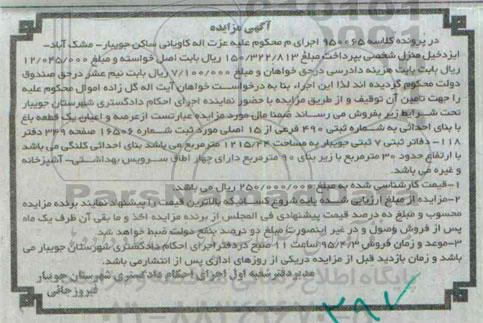 آگهی مزایده
در پرونده کلاسه ۹۵۰۰۶۵ اجرای م محکوم علیه عزت اله کاویانی ساکن جویبار- مشک آباد-
ایزدخیل منزل شخصی بپرداخت مبلغ ۱۵۰/۳۲۲/۸۱۳ ریال بابت اصل خواسته و مبلغ ۱۲/۰۴۵/۰۰۰
ریال بابت بابت هزینه دادرسی درحق خواهان و مبلغ ۷/۱۰۰/۰۰۰ ریال بابت نیم عشر درحق صندوق
دولت محکوم گردیده اند لذا این اجراء بنا به درخواست خواهان آیت اله گل زاده اموال محکوم علیه
را جهت تامین آن توقیف و از طریق مزایده با حضور نماینده اجرای احکام دادگستری شهرستان جویبار
تحت شرایط زیر بفروش می رساند ضمنا مال مورد مزایده عبارتست ازعرصه و اعیان یک قطعه باغ
با بنای احداثی به شماره ثبتی ۴۹۰ فرعی از ۱۵ اصلی مورد ثبت شماره ۱۶۵۰۶ صفحه ۳۴۹ دفتر
۱۱۸- دفاتر ثبتی ۷ ثبتی جویبار به مساحت ۱۲۱۵/۴۴ مترمربع می باشد بنای احداثی کلنگی می باشد
با ارتفاع حدود ۳۰ مترمربع با زیر بنای ۹۰ مترمربع دارای چهار اطاق سرویس بهداشتی- آشپزخانه
و غیره می باشد.
۱-قیمت کارشناسی شده به مبلغ ۲۵۰/۰۰۰/۰۰۰ ریال می باشد.
۲-مزایده از مبلغ ارزیابی شده پایه شروع کسانیکه بالاترین قیمت را پیشنهاد نمایند برنده مزایده
محسوب و مبلغ ده درصد قیمت پیشنهادی فی المجلس از برنده مزایده اخذ و ما بقی آن ظرف یک ماه
پس از فروش وصول و در غیر اینصورت مبلغ دو درصد بنفع دولت ضبط خواهد شد.
۳-موعد و زمان فروش ۹۵/۴/۳ ساعت ۱۱ صبح دردفتر اجرای احکام دادگستری شهرستان جویبار می
باشد و زمان بازدید قبل از مزایده دریکی از روزهای اداری پس از انتشار می باشد.
مدیر دفتر شعبه اول اجرای احکام دادگستری شهرستان جویبار
فیروزجائی